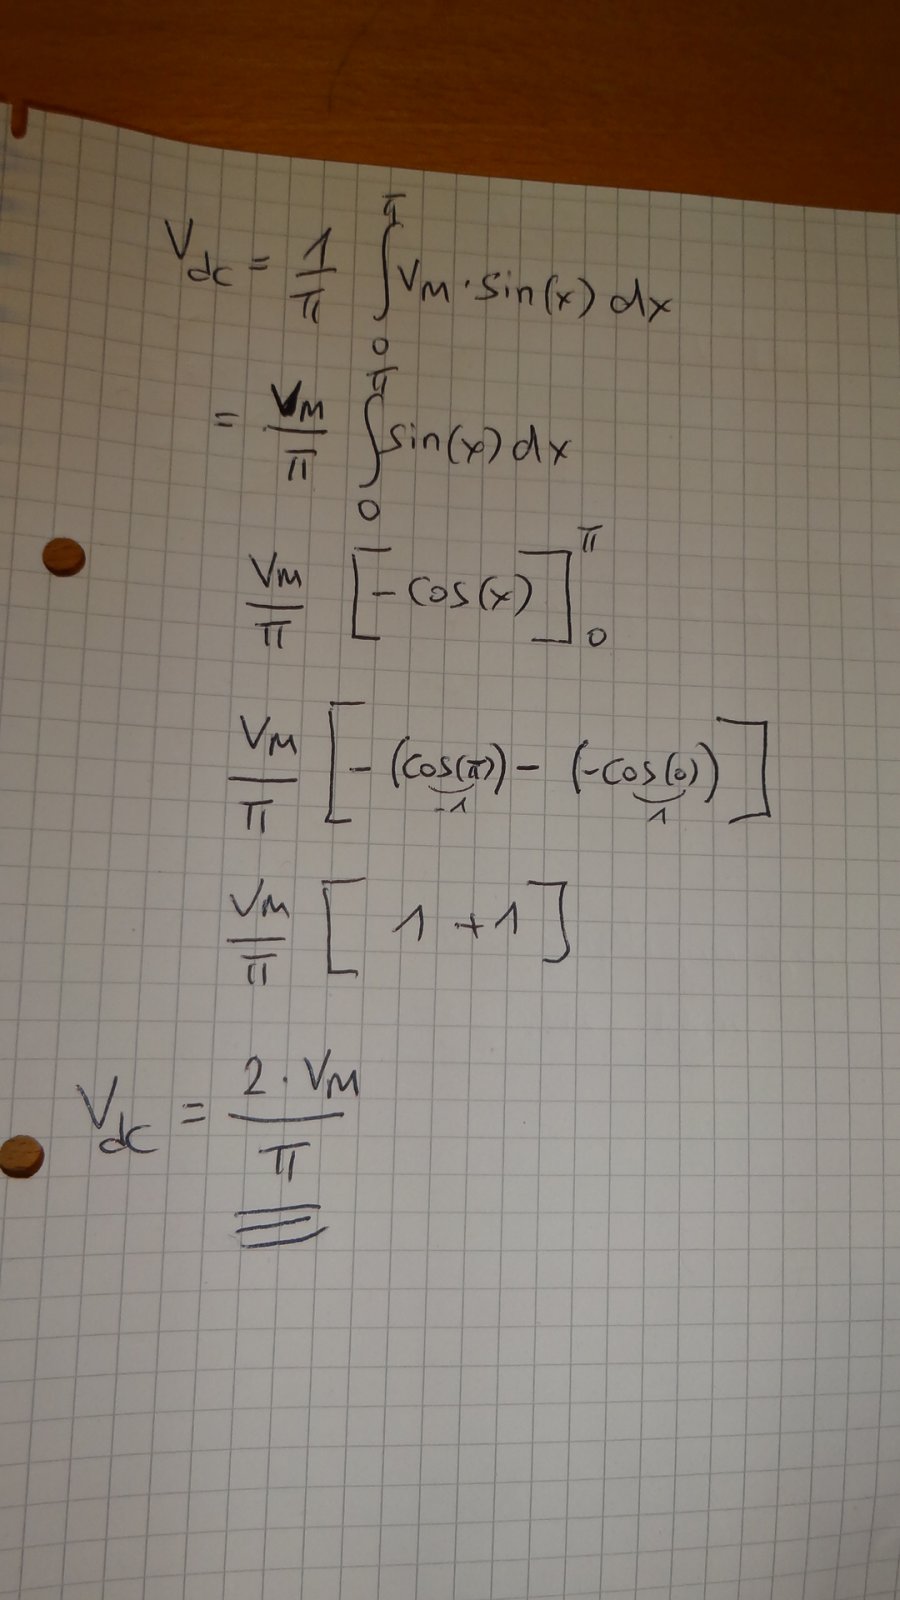 V_dc = 1/π ∫₀^π V_M · sin(x) dx
= V_M/π ∫₀^π sin(x) dx
V_M/π [-cos(x)]₀^π
V_M/π [-(cos(π)) - (-cos(0))]
-1 1
V_M/π [1 + 1]
V_dc = 2 · V_M/π